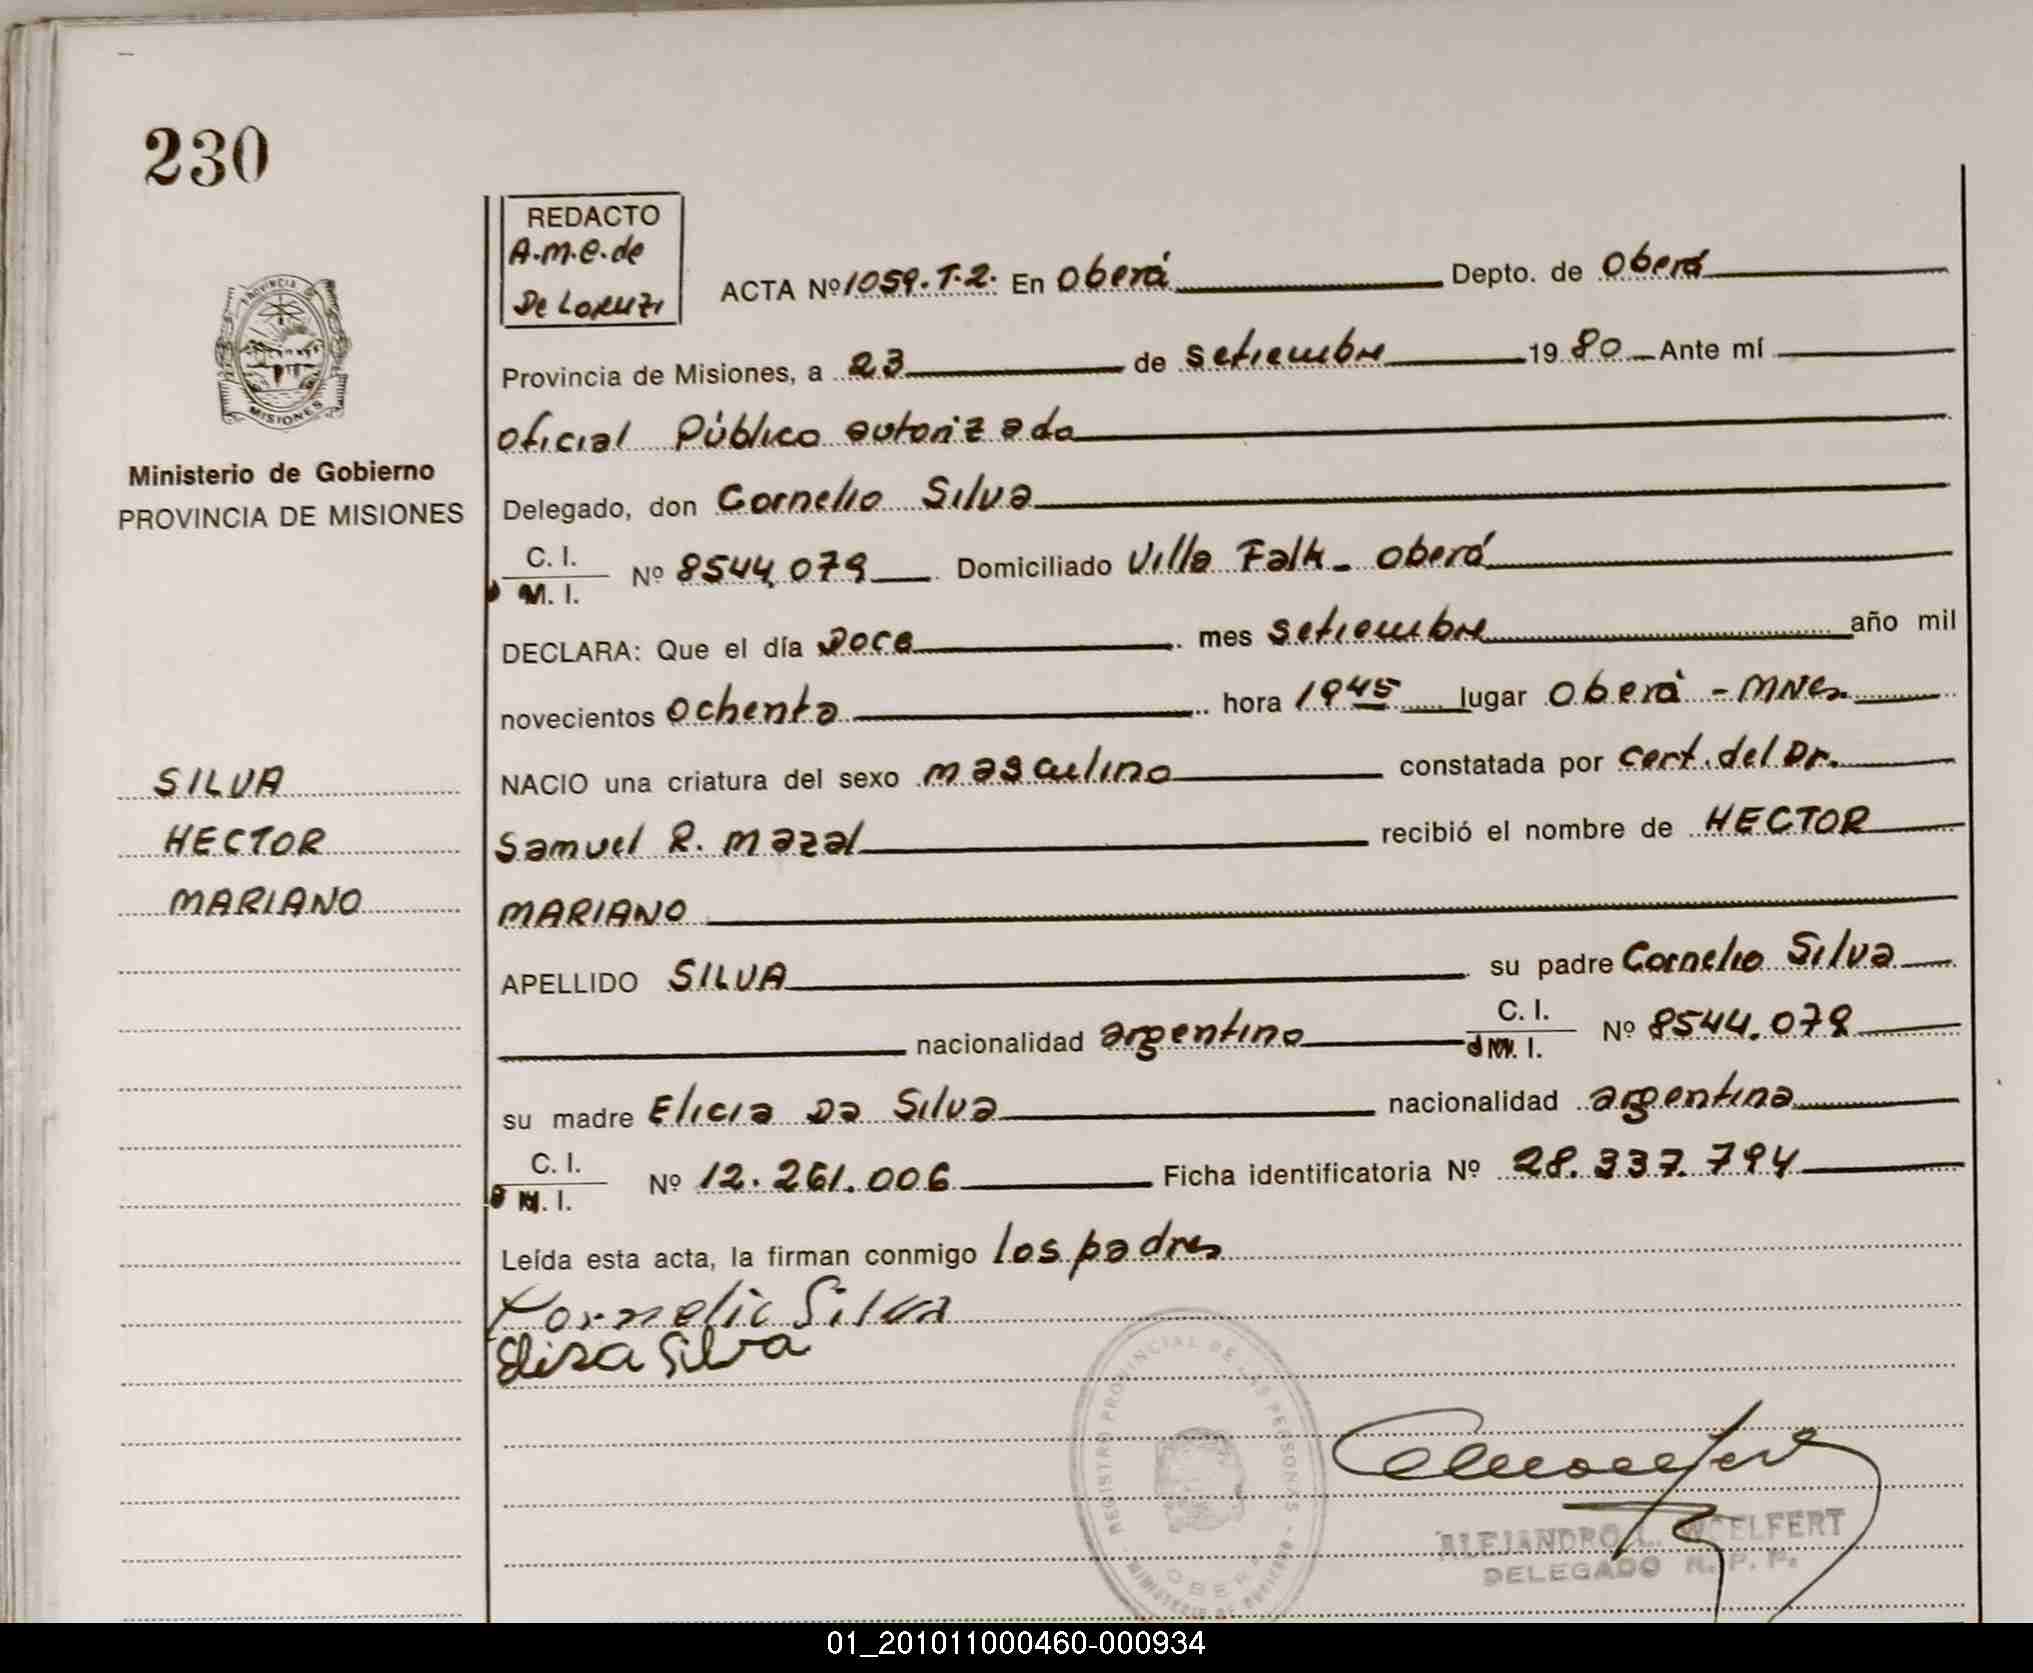 230
REDACTO
A.M.E. de
De Loruzi
ACTA Nº 1059. T.2. En Oberá Depto. de Oberá
Provincia de Misiones, a 23 de setiembre 1980 Ante mí
Oficial Público autorizado
Ministerio de Gobierno
PROVINCIA DE MISIONES
Delegado, don Cornelio Silva
C. I.
M. I. Nº 8544.079 Domiciliado Villa Falk - Oberá
DECLARA: Que el día Doce mes setiembre año mil
novecientos ochenta hora 1945 lugar Oberá - Mnes
NACIO una criatura del sexo masculino constatada por cert. del Dr.
Samuel R. Mazal recibió el nombre de HECTOR
MARIANO
SILVA
HECTOR
MARIANO
APELLIDO SILVA su padre Cornelio Silva
nacionalidad argentino C. I.
M. I. Nº 8544.079
su madre Elicia Da Silva nacionalidad argentina
C. I.
M. I. Nº 12.261.006 Ficha identificatoria Nº 28.337.794
Leída esta acta, la firman conmigo los padres
Cornelio Silva
Elisa Silva
REGISTRO PROVINCIAL DE LAS PERSONAS
MINISTERIO DE GOBIERNO
OBERA
ALEJANDRO L. WOELFERT
DELEGADO R. P. P.
01_201011000460-000934